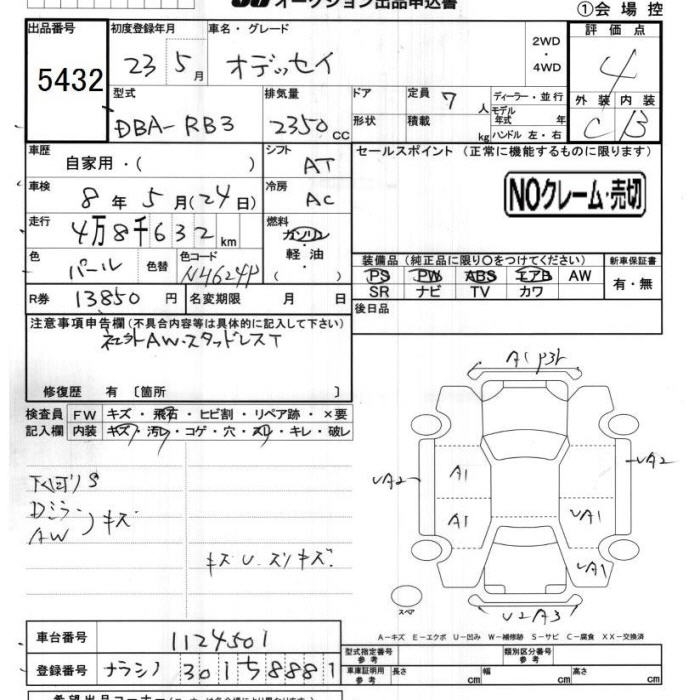 オークション出品申込書
①会場控
出品番号
5432
初度登録年月
23 5月
車名・グレード
オデッセイ
2WD
・
4WD
評価点
4
外装 内装
C B
型式
DBA-RB3
排気量
2350cc
ドア
形状
定員 7人
積載 kg
ディーラー・並行
モデル年式 年
ハンドル 左・右
車歴
自家用・( )
シフト
AT
車検
8年5月(24日)
冷房
AC
走行
4万8千632km
燃料
ガソリン
・
軽油
・
( )
色
パール
色替
色コード
NH624P
R券 13850円
名変期限 月 日
セールスポイント (正常に機能するものに限ります)
NOクレーム・売切
装備品 (純正品に限り○をつけてください)
PS PW ABS エアB AW
SR ナビ TV カワ
新車保証書
有・無
後日品
注意事項申告欄(不具合内容等は具体的に記入して下さい)
AW・スタッドレスT
修復歴 有〔箇所 〕
検査員 FW キズ・飛石・ヒビ割・リペア跡・×要
記入欄 内装 キズ・汚レ・コゲ・穴・スレ・キレ・破レ
Dミラー
AW
キズ
キズU.スリキズ.
A1
UA2
A1
A1
UA2
UA1
UA1
U2A3
スペア
A-キズ E-エクボ U-凹み W-補修跡 S-サビ C-腐食 XX-交換済
車台番号 1124501
登録番号 ナラシノ 301 5 8881
型式指定番号 参考
類別区分番号 参考
車庫証明用 参考 長さ cm 幅 cm 高さ cm